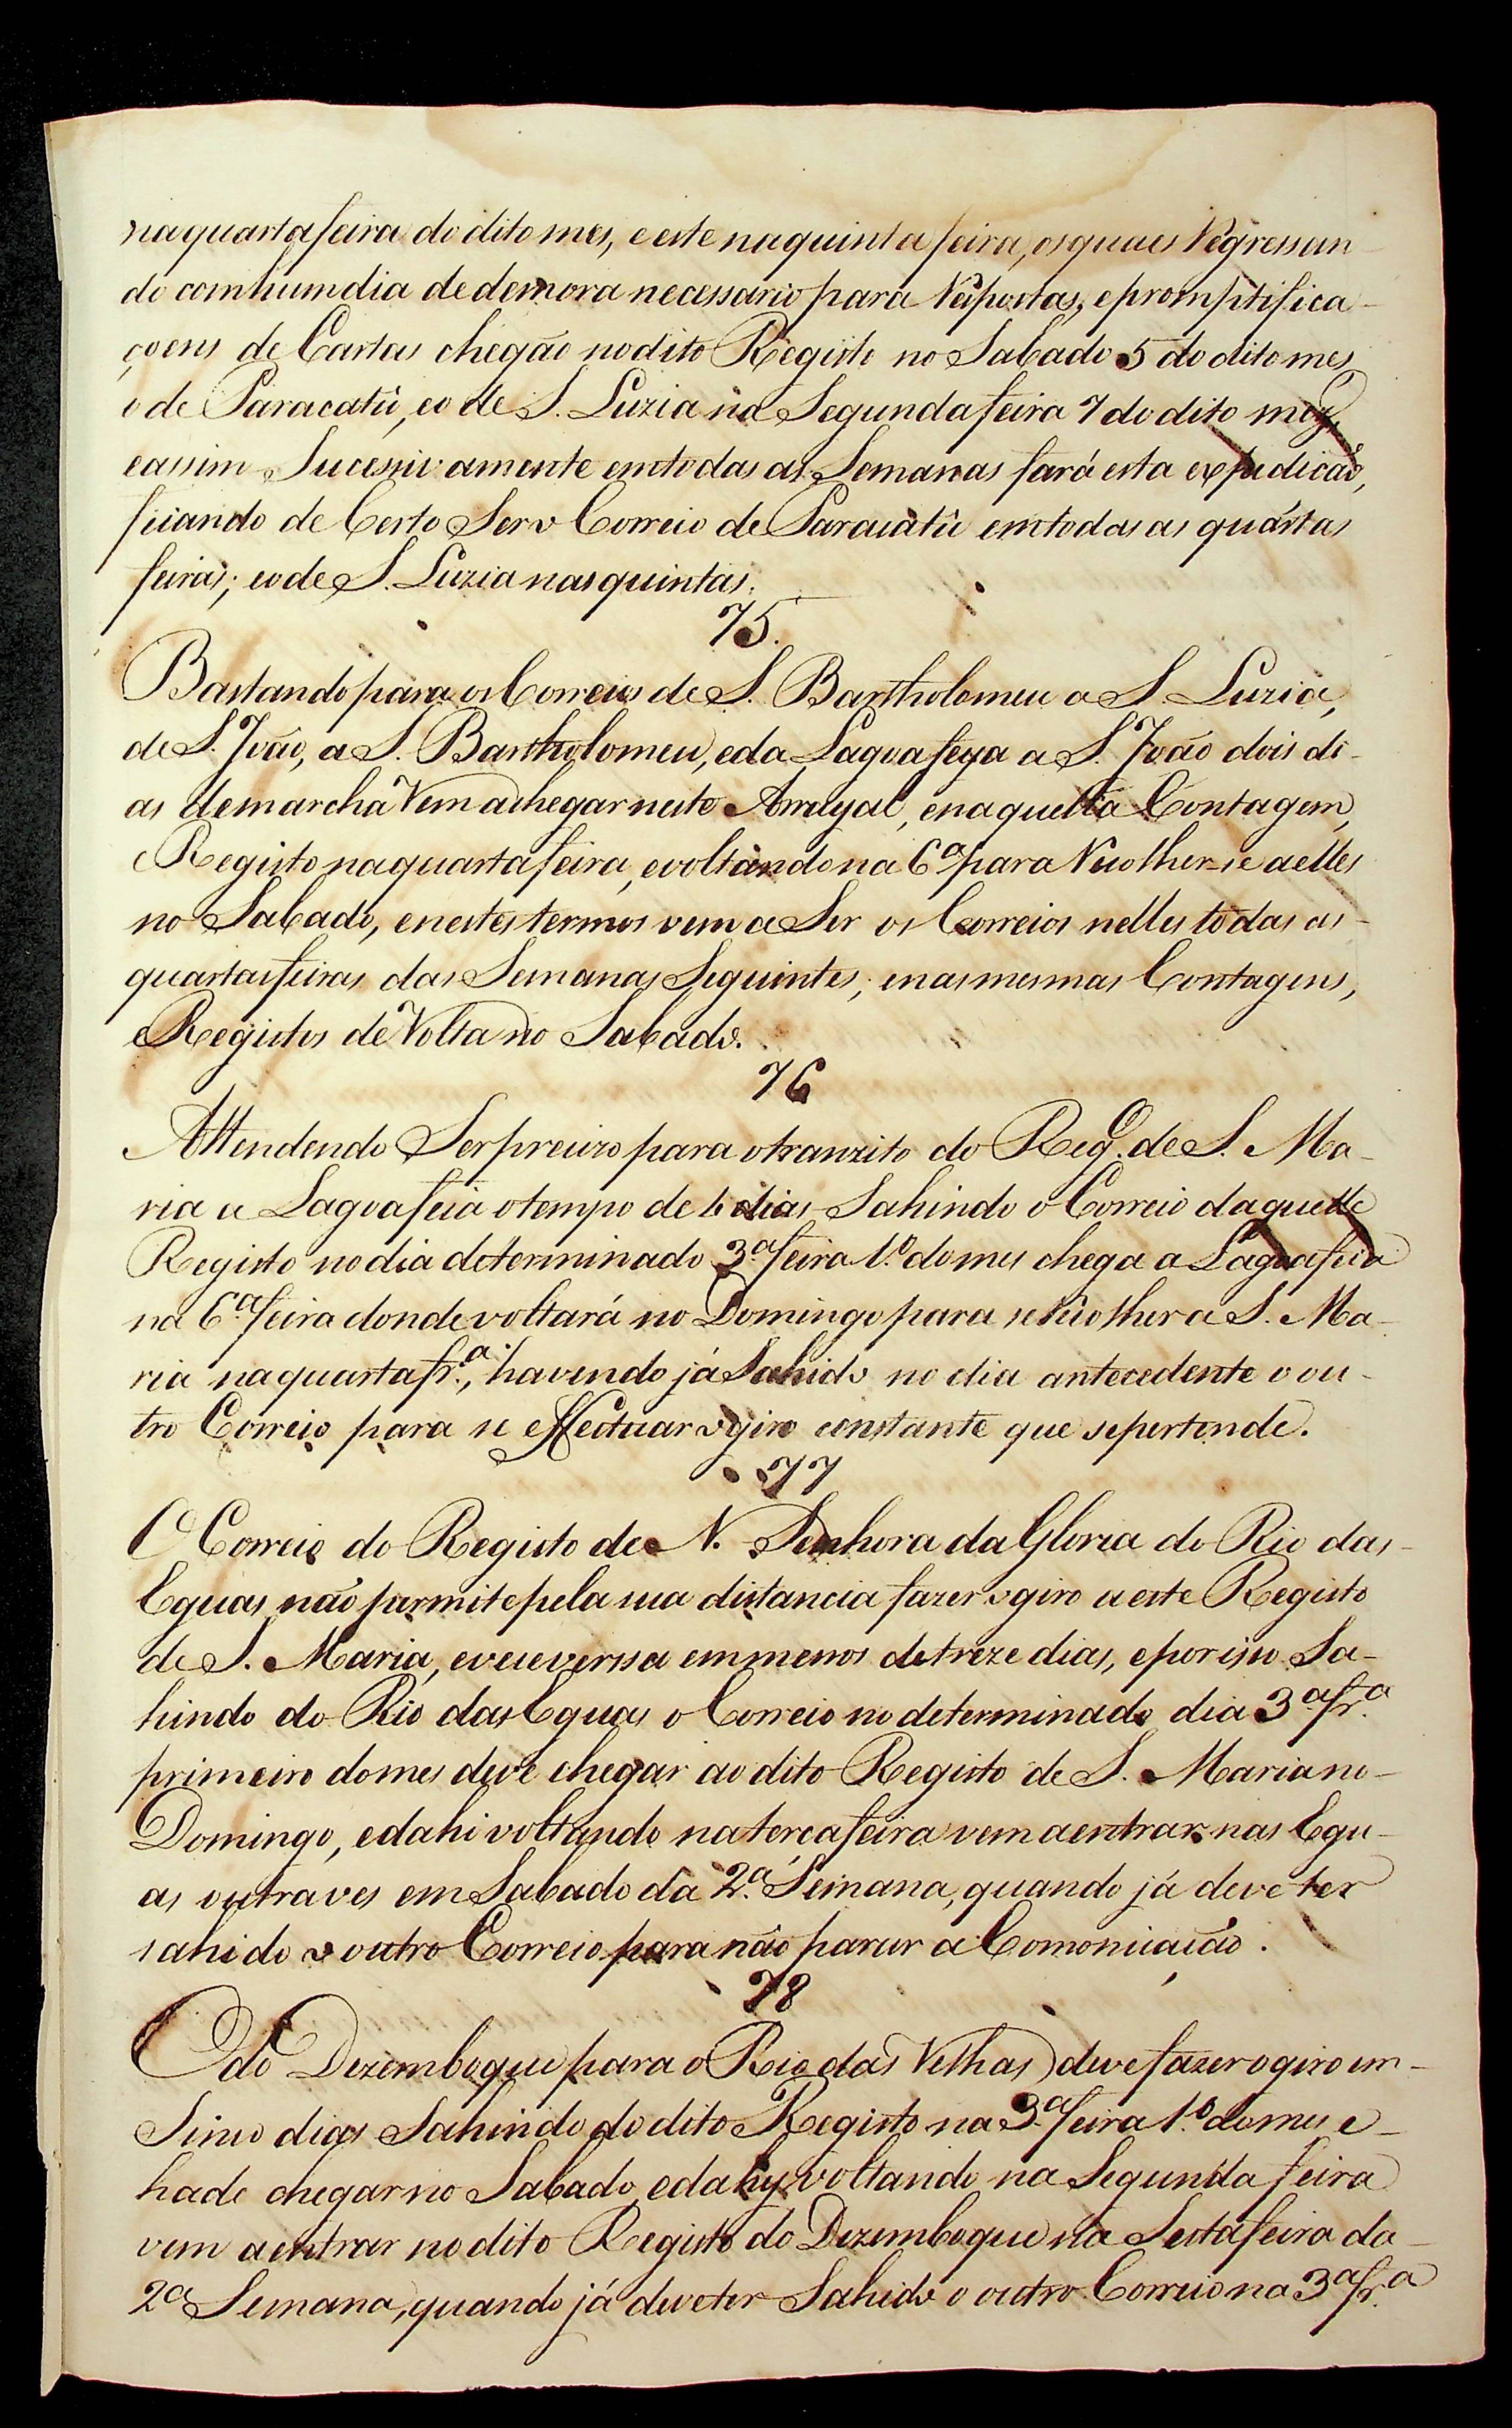 na quarta feira do dito mes, e este na quinta feira, os quaes Regressan-
do com hum dia de demora necessario para Respostas, e promptifica-
çoens de Cartas chegão no dito Registo no Sabado 5 do dito mes
o de Paracatú, e o de S. Luzia na Segunda feira 7 do dito mez,
e assim Sucessivamente em todas as Semanas fará esta expedicão,
ficando de Certo Ser o Correio de Paracatú em todas as quartas
feiras; e o de S. Luzia nas quintas.
75.
Bastando para os Correios de S. Bartholomeu a S. Luzia,
de S. João, a S. Bartholomeu, e da Lagoa feya a S. João dois di-
as de marcha Vem a chegar neste Arrayal, e naquella Contagem,
e Registo na quarta feira, e voltando na 6ª para Recolher-se a elles
no Sabado, e nestes termos vem a Ser os Correios nelles todas as
quartas feiras das Semanas Seguintes; e nas mesmas Contagens,
e Registos de Volta no Sabado.
76
Attendendo Ser precizo para o tranzito do Reg.º de S. Ma-
ria a Lagoa feia o tempo de 4 dias Sahindo o Correio daquelle
Registo no dia determinado 3.ª feira 1.º do mes chega a Lagoa feia
na 6.ª feira donde voltará no Domingo para se Recolher a S. Ma-
ria na quarta fr.ª, havendo já Sahido no dia antecedente o ou-
tro Correio para se effectuar o giro constante que se pertende.
77
O Correio do Registo de N. Senhora da Gloria do Rio das
Eguas não permite pela sua distancia fazer o giro a este Registo
de S. Maria, e vece verssa em menos de treze dias, e por isso Sa-
hindo do Rio das Eguas o Correio no determinado dia 3ª fr.ª
primeiro do mes deve chegar ao dito Registo de S. Maria no
Domingo, e dahi voltando na terca feira vem a entrar nas Egu-
as outra ves em Sabado da 2.ª Semana, quando já deve ter
sahido o outro Correio para não parar a Comonicacão.
78
O do Dezemboque para o Rio das Velhas deve fazer o giro em
Sinco dias Sahindo do dito Registo na 3.ª feira 1.º do mes e
hade chegar no Sabado, e dahy voltando na Segunda feira
vem a entrar no dito Registo do Dezemboque na Sesta feira da
2ª Semana, quando já deve ter Sahido o outro Correio na 3ª fr.ª